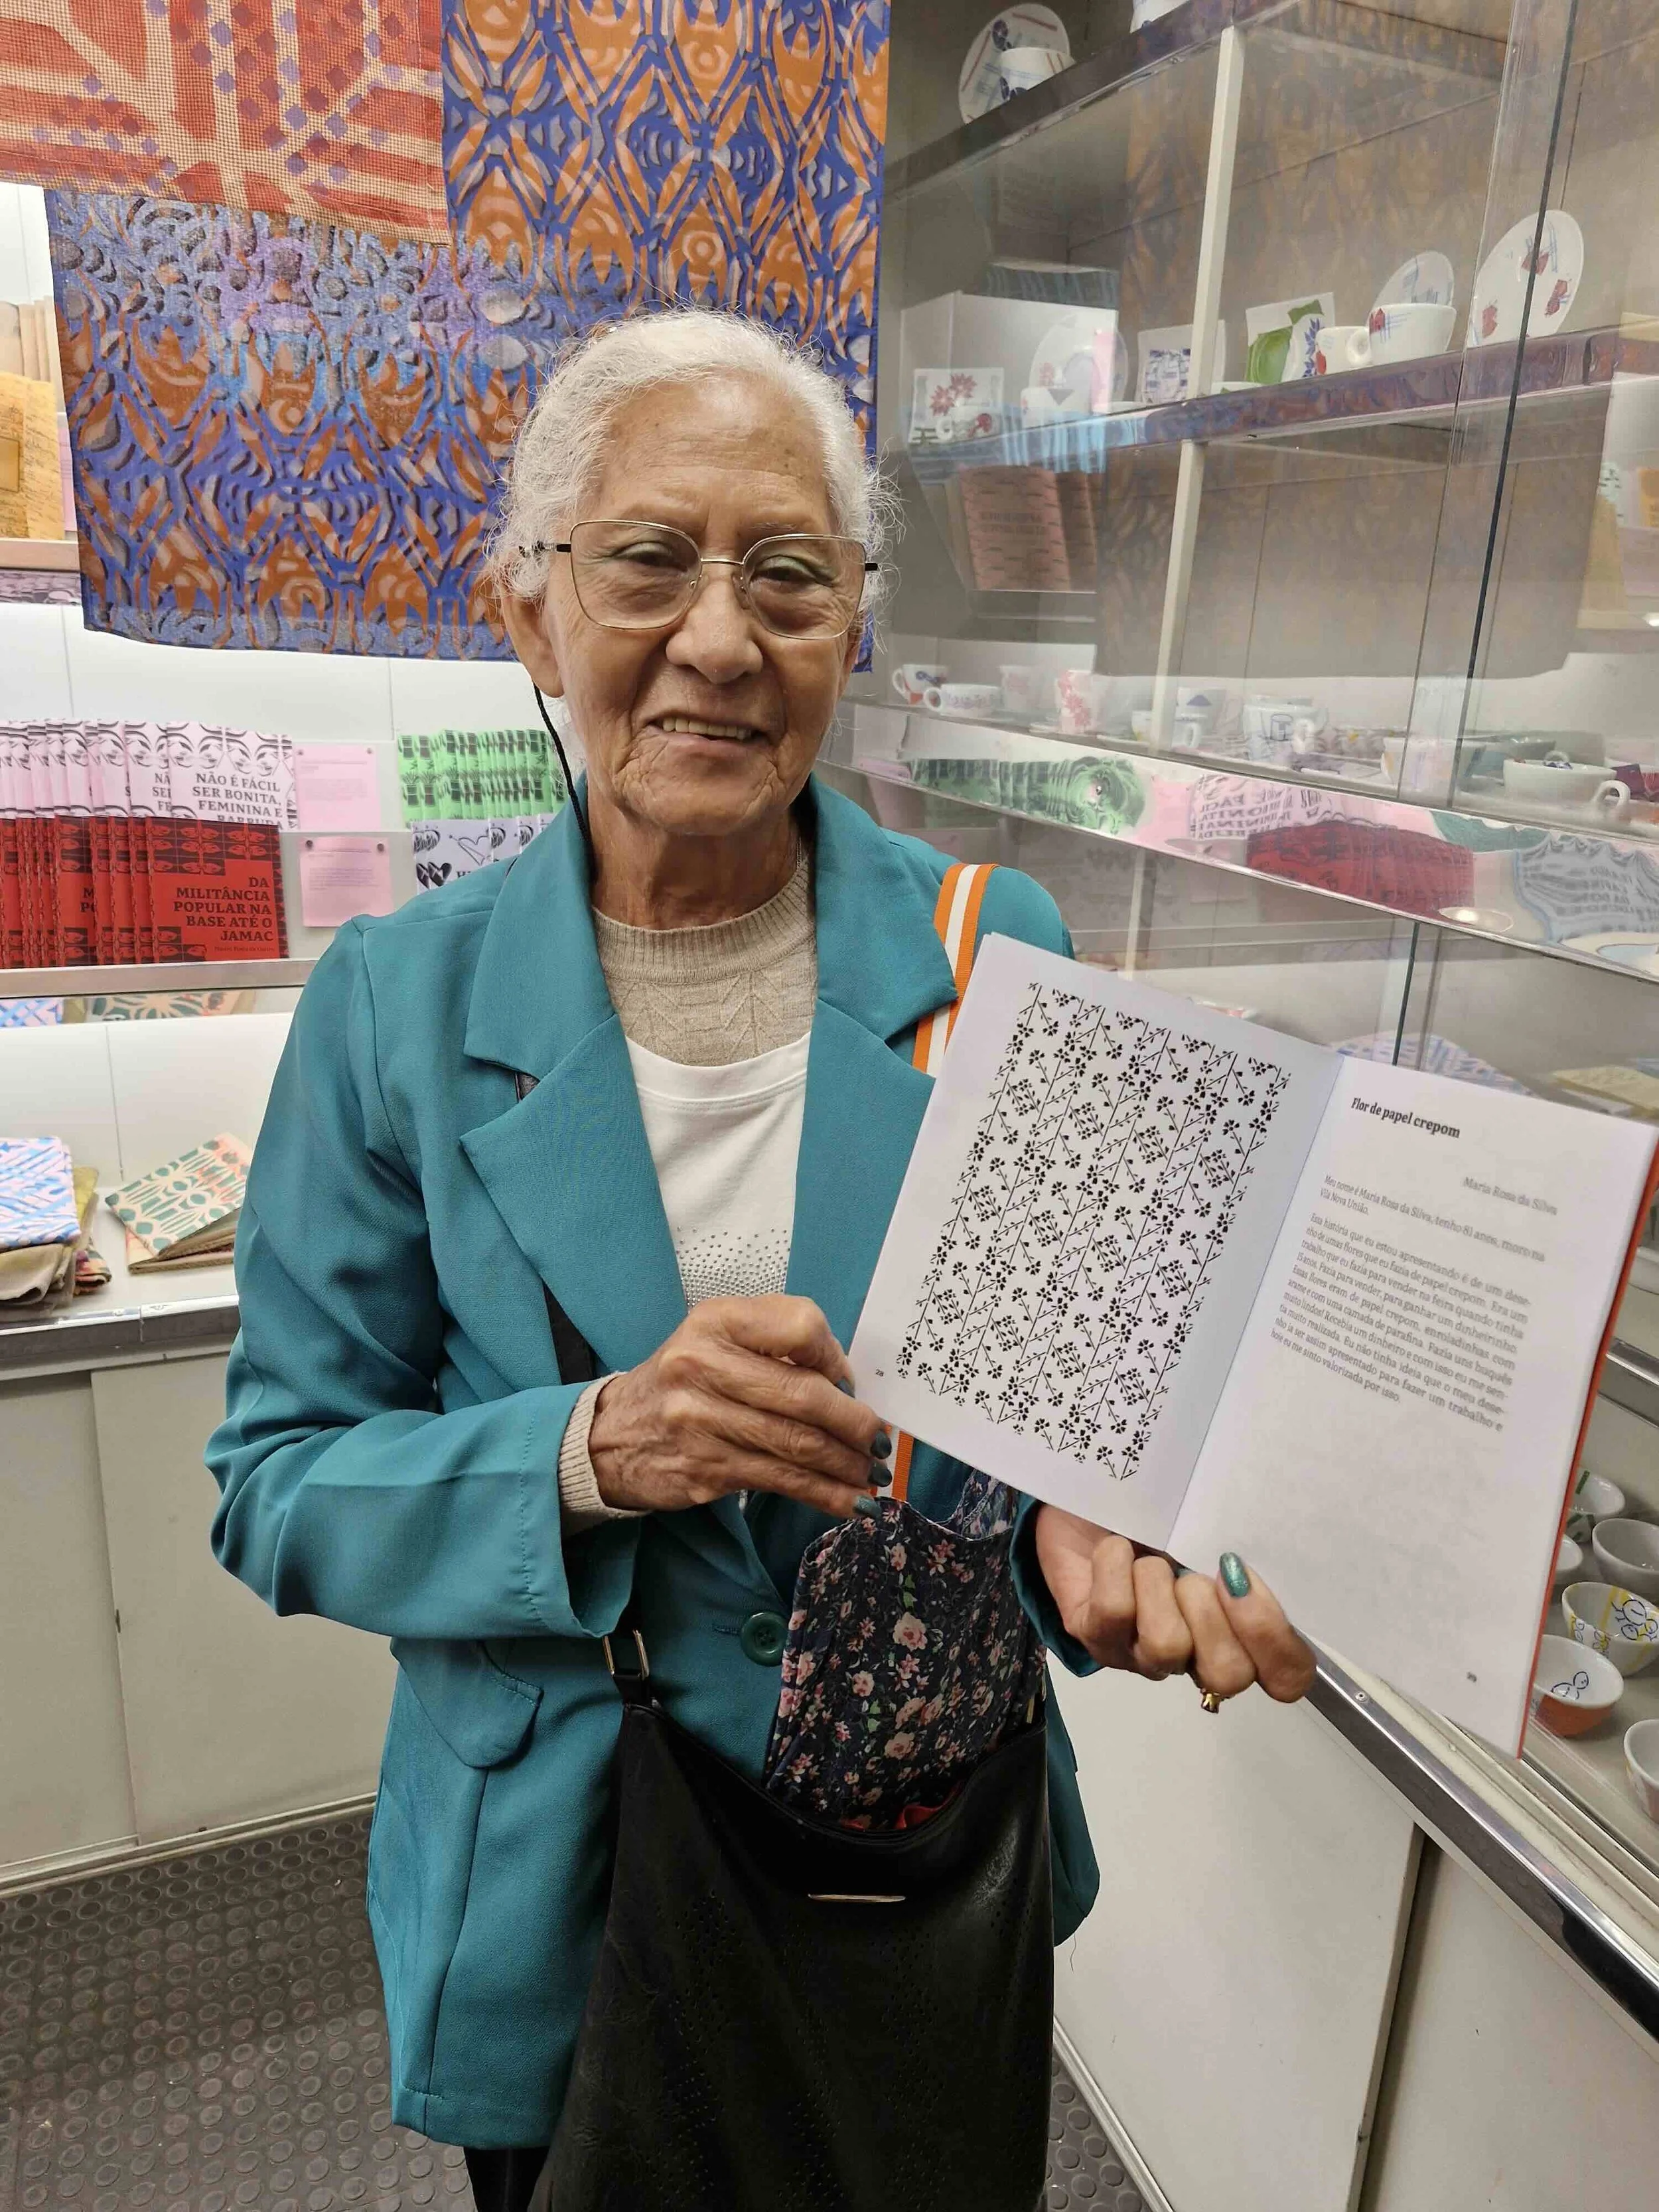 NÃO É FÁCIL
SER BONITA,
FEMININA E
BARBUDA
NÃ
SEI
FE
DA
MILITÂNCIA
POPULAR NA
BASE ATÉ O
JAMAC
M
PO
28
Flor de papel crepom
Maria Rosa da Silva
Meu nome é Maria Rosa da Silva, tenho 81 anos, moro na
Vila Nova União.
Essa história que eu estou apresentando é de um dese-
nho de umas flores que eu fazia de papel crepom. Era um
trabalho que eu fazia para vender na feira quando tinha
15 anos. Fazia para vender, para ganhar um dinheirinho.
Essas flores eram de papel crepom, enroladinhas com
arame e com uma camada de parafina. Fazia uns buquês
muito lindos! Recebia um dinheiro e com isso eu me sen-
tia muito realizada. Eu não tinha ideia que o meu dese-
nho ia ser assim apresentado para fazer um trabalho e
hoje eu me sinto valorizada por isso.
29